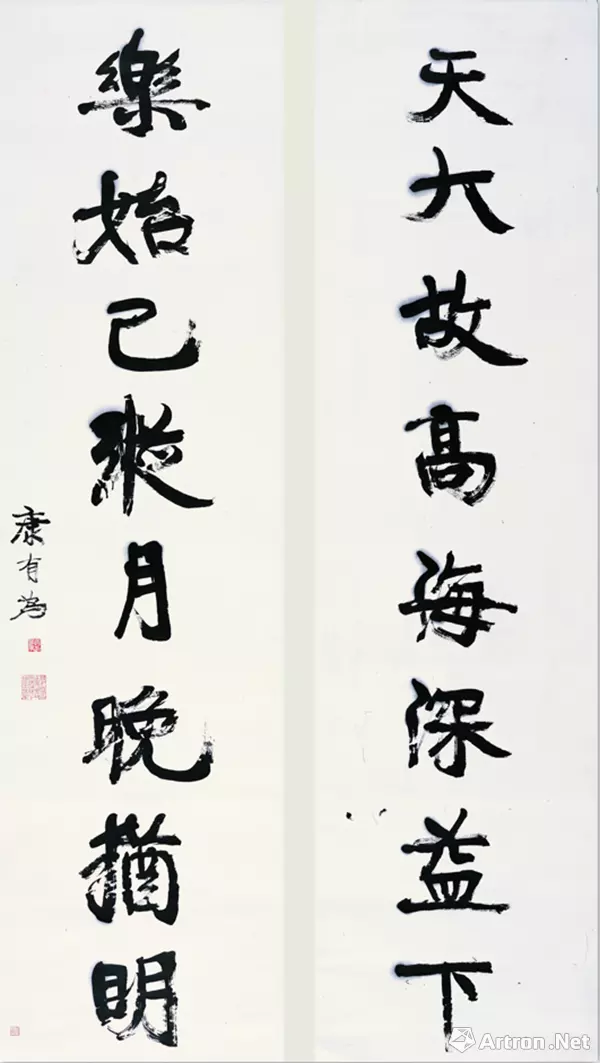 天大故高海深益下
樂始已縱月晚猶明
康有為
Artron.Net